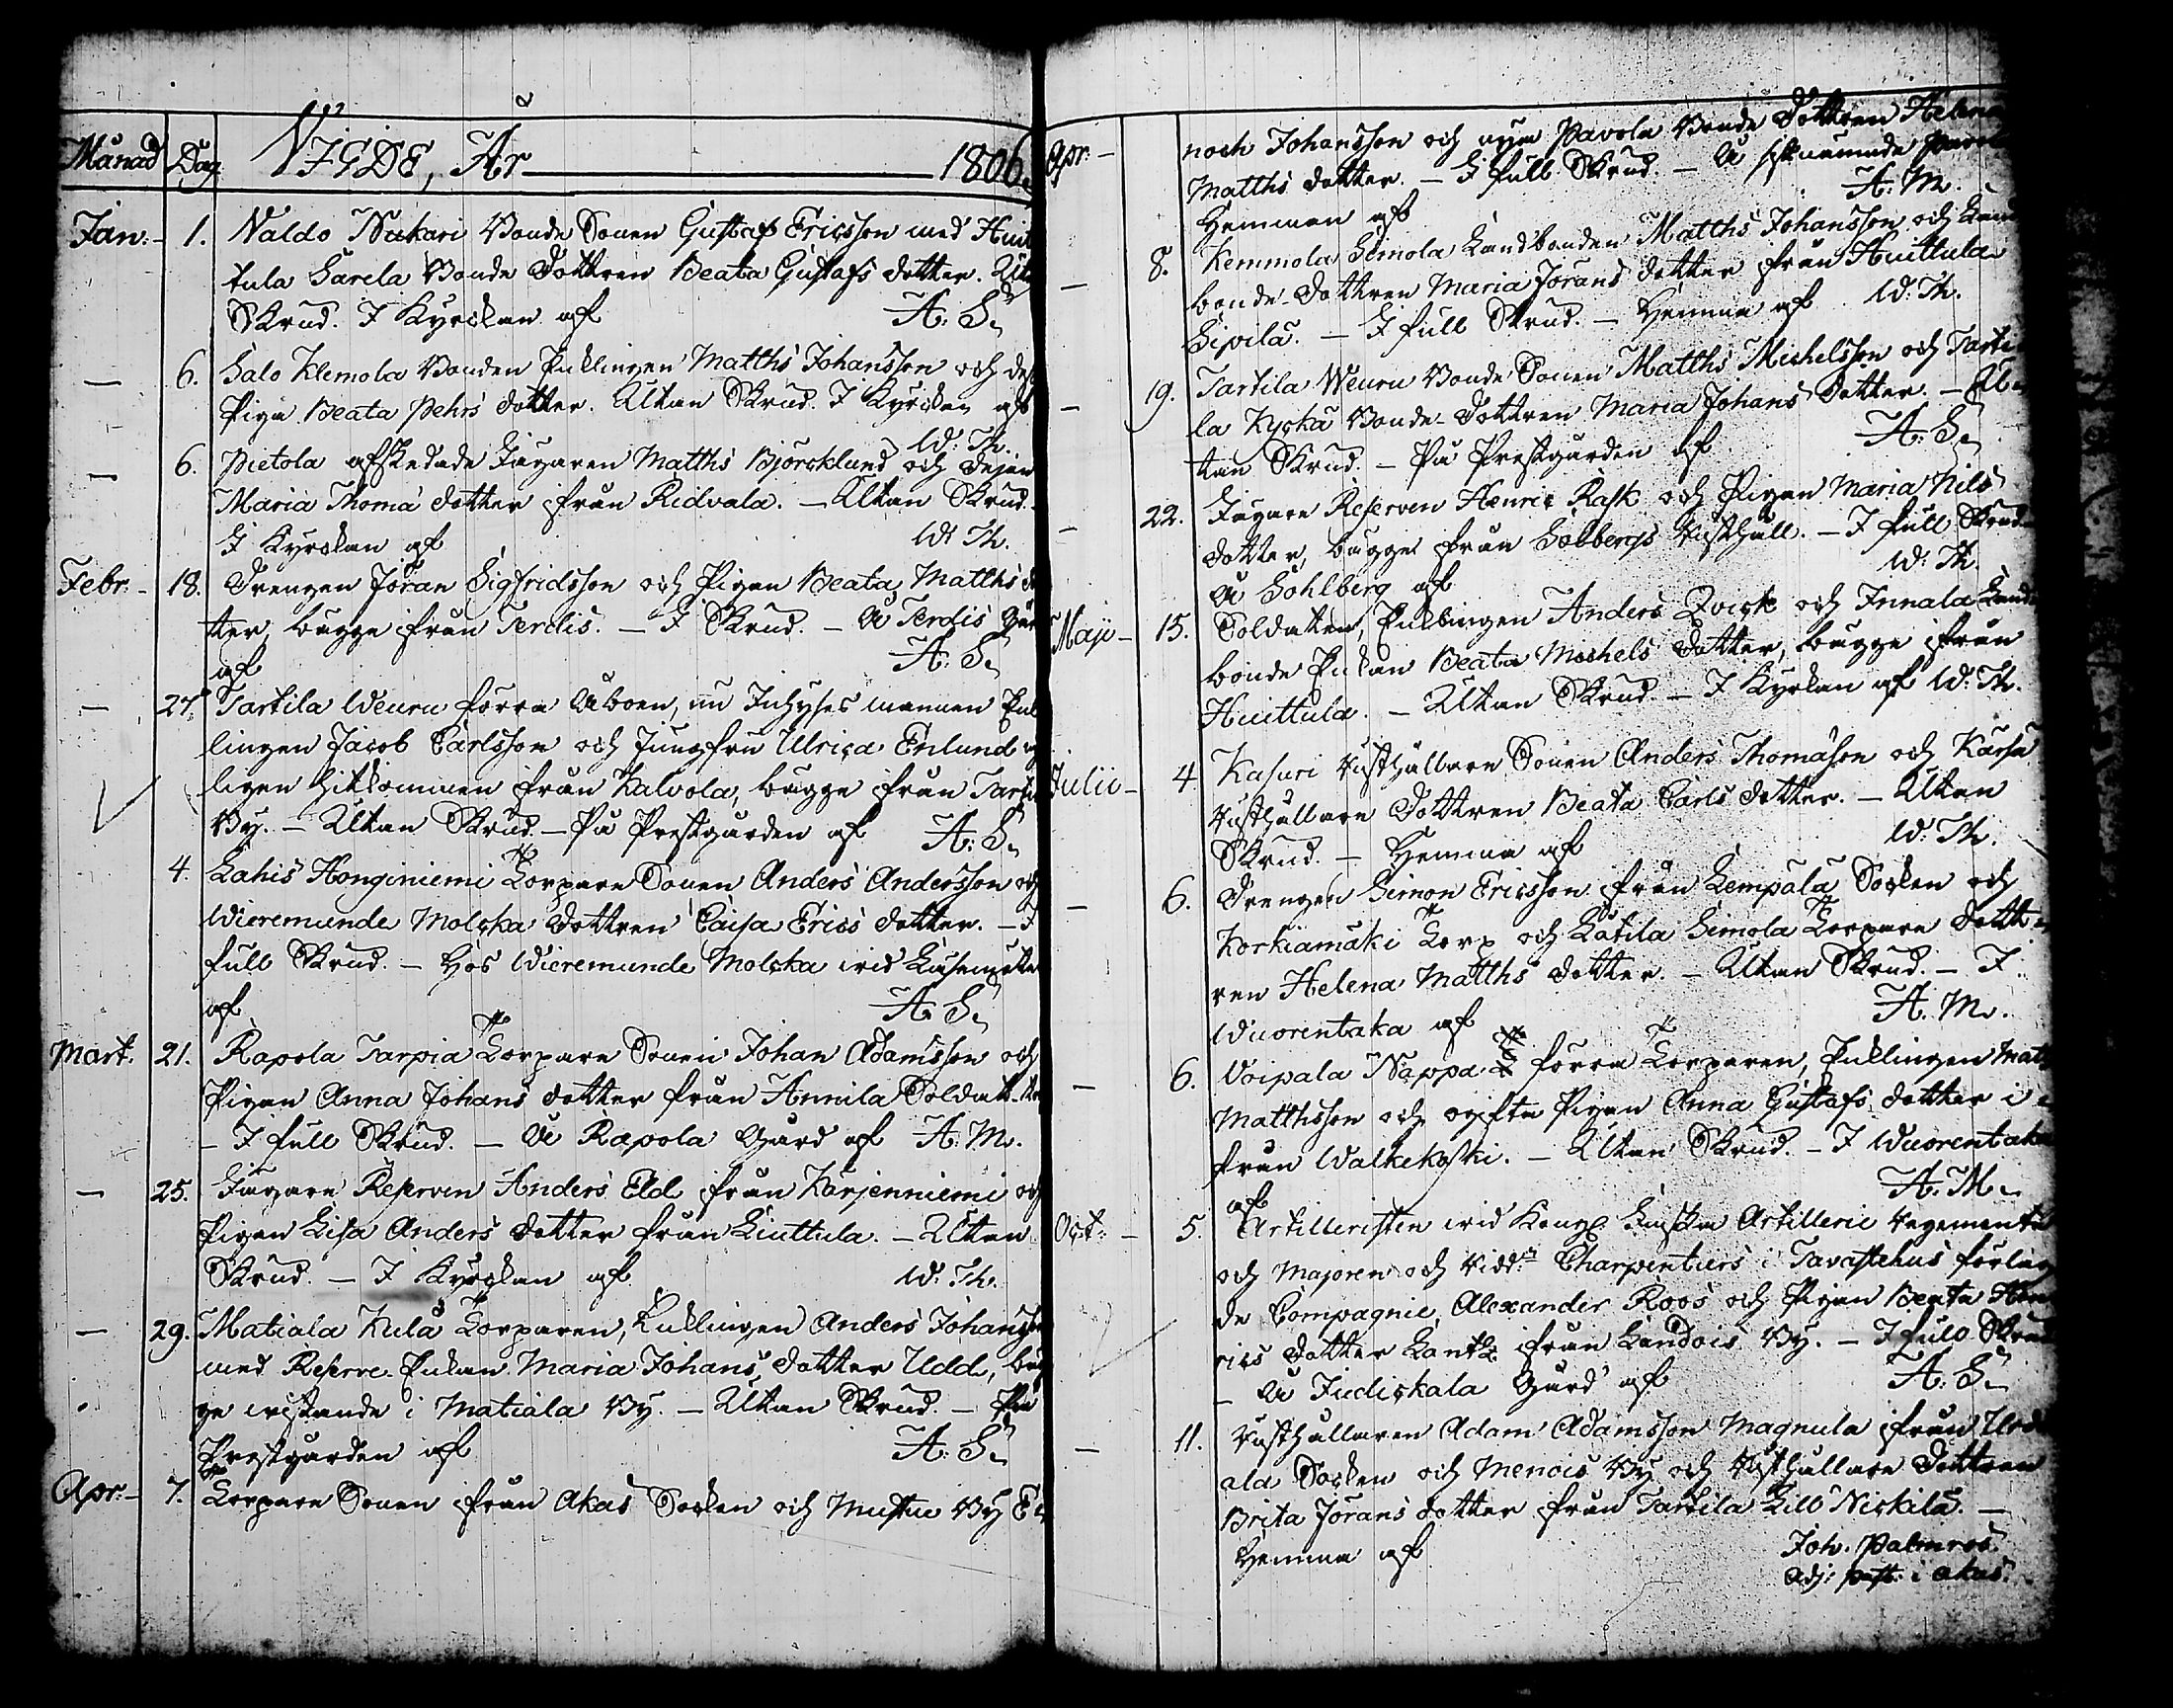 Månad Dag VIGDE, År 1806.
Jan:- 1. Naldo Nukari Bonde Sonen Gustaf Ericsson med Huit
tula Sarela Bonde Dottren Beata Gustafs dotter. Utan
Skrud. I Kyrckan af A: S.
— 6. Salo Klemola Bonden Enklingen Matths Johansson och des
Piga Beata Pehrs dotter. Utan Skrud. I Kyrckan af
W: Th.
— 6. Pietola afskedade Jägaren Matths Björcklund och Dejan
Maria Thomæ dotter ifrån Ridvala. — Utan Skrud.
I Kyrckan af W: Th.
Febr:- 18. Drengen Jöran Sigfridsson och Pigan Beata Matths do
tter, bägge ifrån Terdis. — I Skrud. — Å Terdis Går
af A: S.
— 27. Tartila Weuru förra Åboen, nu Inhyses mannen Enk
lingen Jacob Carlsson och Jungfru Ulrica Enlund
ligen hitkommen från Kalvola, bägge från Tarti
By. — Utan Skrud. — På Prestgården af A: S.
4. Lahis Honginiemi Torpare Sonen Anders Andersson och
Wieremunde Molcka Dottren Caisa Erics dotter. — I
full Skrud. — Hos Wieremunde Molcka vid
af A: S.
Mart. 21. Rapola Tarpia Torpare Sonen Johan Adamsson och
Pigan Anna Johans dotter från Annila Soldats
— I full Skrud. — Å Rapola Gård af A: M.
— 25. Jägare Reserven Anders Eld från Karjenniemi och
Pigan Lisa Anders dotter från Liuttula. — Utan
Skrud. — I Kyrckan af W: Th.
— 29. Matiala Kulä Torparen, Enklingen Anders Johansson
med Reserve Enkan Maria Johans dotter Udd, bäg
ge vistande i Matiala By. — Utan Skrud. — På
Prestgården af A: S.
Apr:- 7. Torpare Sonen ifrån Akas Socken och Mustue By E
Apr:- noch Johansson och Pavola Bonde Dottren Helena
Matths dotter. — I full Skrud. — Å Pavola
Hemman af A: M.
— 8. Kemmola Simola Landbonden Matths Johansson och Land
bonde-Dottren Maria Jörans dotter ifrån Huittula
Sipilä. — I full Skrud. — Hemma af W: Th.
— 19. Tartila Weuru Bonde Sonen Matths Michelsson och Tarti
la Kyckä Bonde-Dottren Maria Johans Dotter. — U
tan Skrud. — På Prestgården af A: S.
— 22. Jägare Reserven Henric Rask och Pigan Maria Nils
dotter, bägge ifrån Solbergs Rusthåll. — I full Skrud.
Å Sohlberg af W: Th.
Maji- 15. Soldaten, Enklingen Anders Qvick och Innala Land
bonde Enkan Beata Michels dotter, bägge ifrån
Huittula. — Utan Skrud. — I Kyrkan af W: Th.
Julii- 4. Kasuri Rusthållare Sonen Anders Thomasson och
Rusthållare Dottren Beata Carls dotter. — Utan
Skrud. — Hemma af W: Th.
— 6. Drengen Simon Ericsson från Lempälä Socken och
Korkiamäki Torp och Ratila Simola Torpare Dott-
ren Helena Matths dotter. — Utan Skrud. — I
Wuorentaka af A: M.
— 6. Voipala Nappa förra Torparen, Enklingen Matths
Matthsson och ogifta Pigan Anna Gustafs dotter
från Walkekoski. — Utan Skrud. — I Wuorentaka
af A: M.
Oct:- 5. Artilleristen vid Kongl. Finska Artillerie Regementet
och Majoren och Ridd:n Charpentiers i Tavastehus förlag
de Compagnie, Alexander Roos och Pigan Beata Hen
rics dotter ifrån Landois By. — I full Skrud
— Å Judickala Gård af A: S.
— 11. Rusthållaren Adam Adamsson Magnula ifrån Urdi
ala Socken och Menois By och Rusthållare Dottren
Brita Jörans dotter från Tartila Lill Nickilä. —
Hemma af Joh. Palmros.
Adj: past: i Akas.